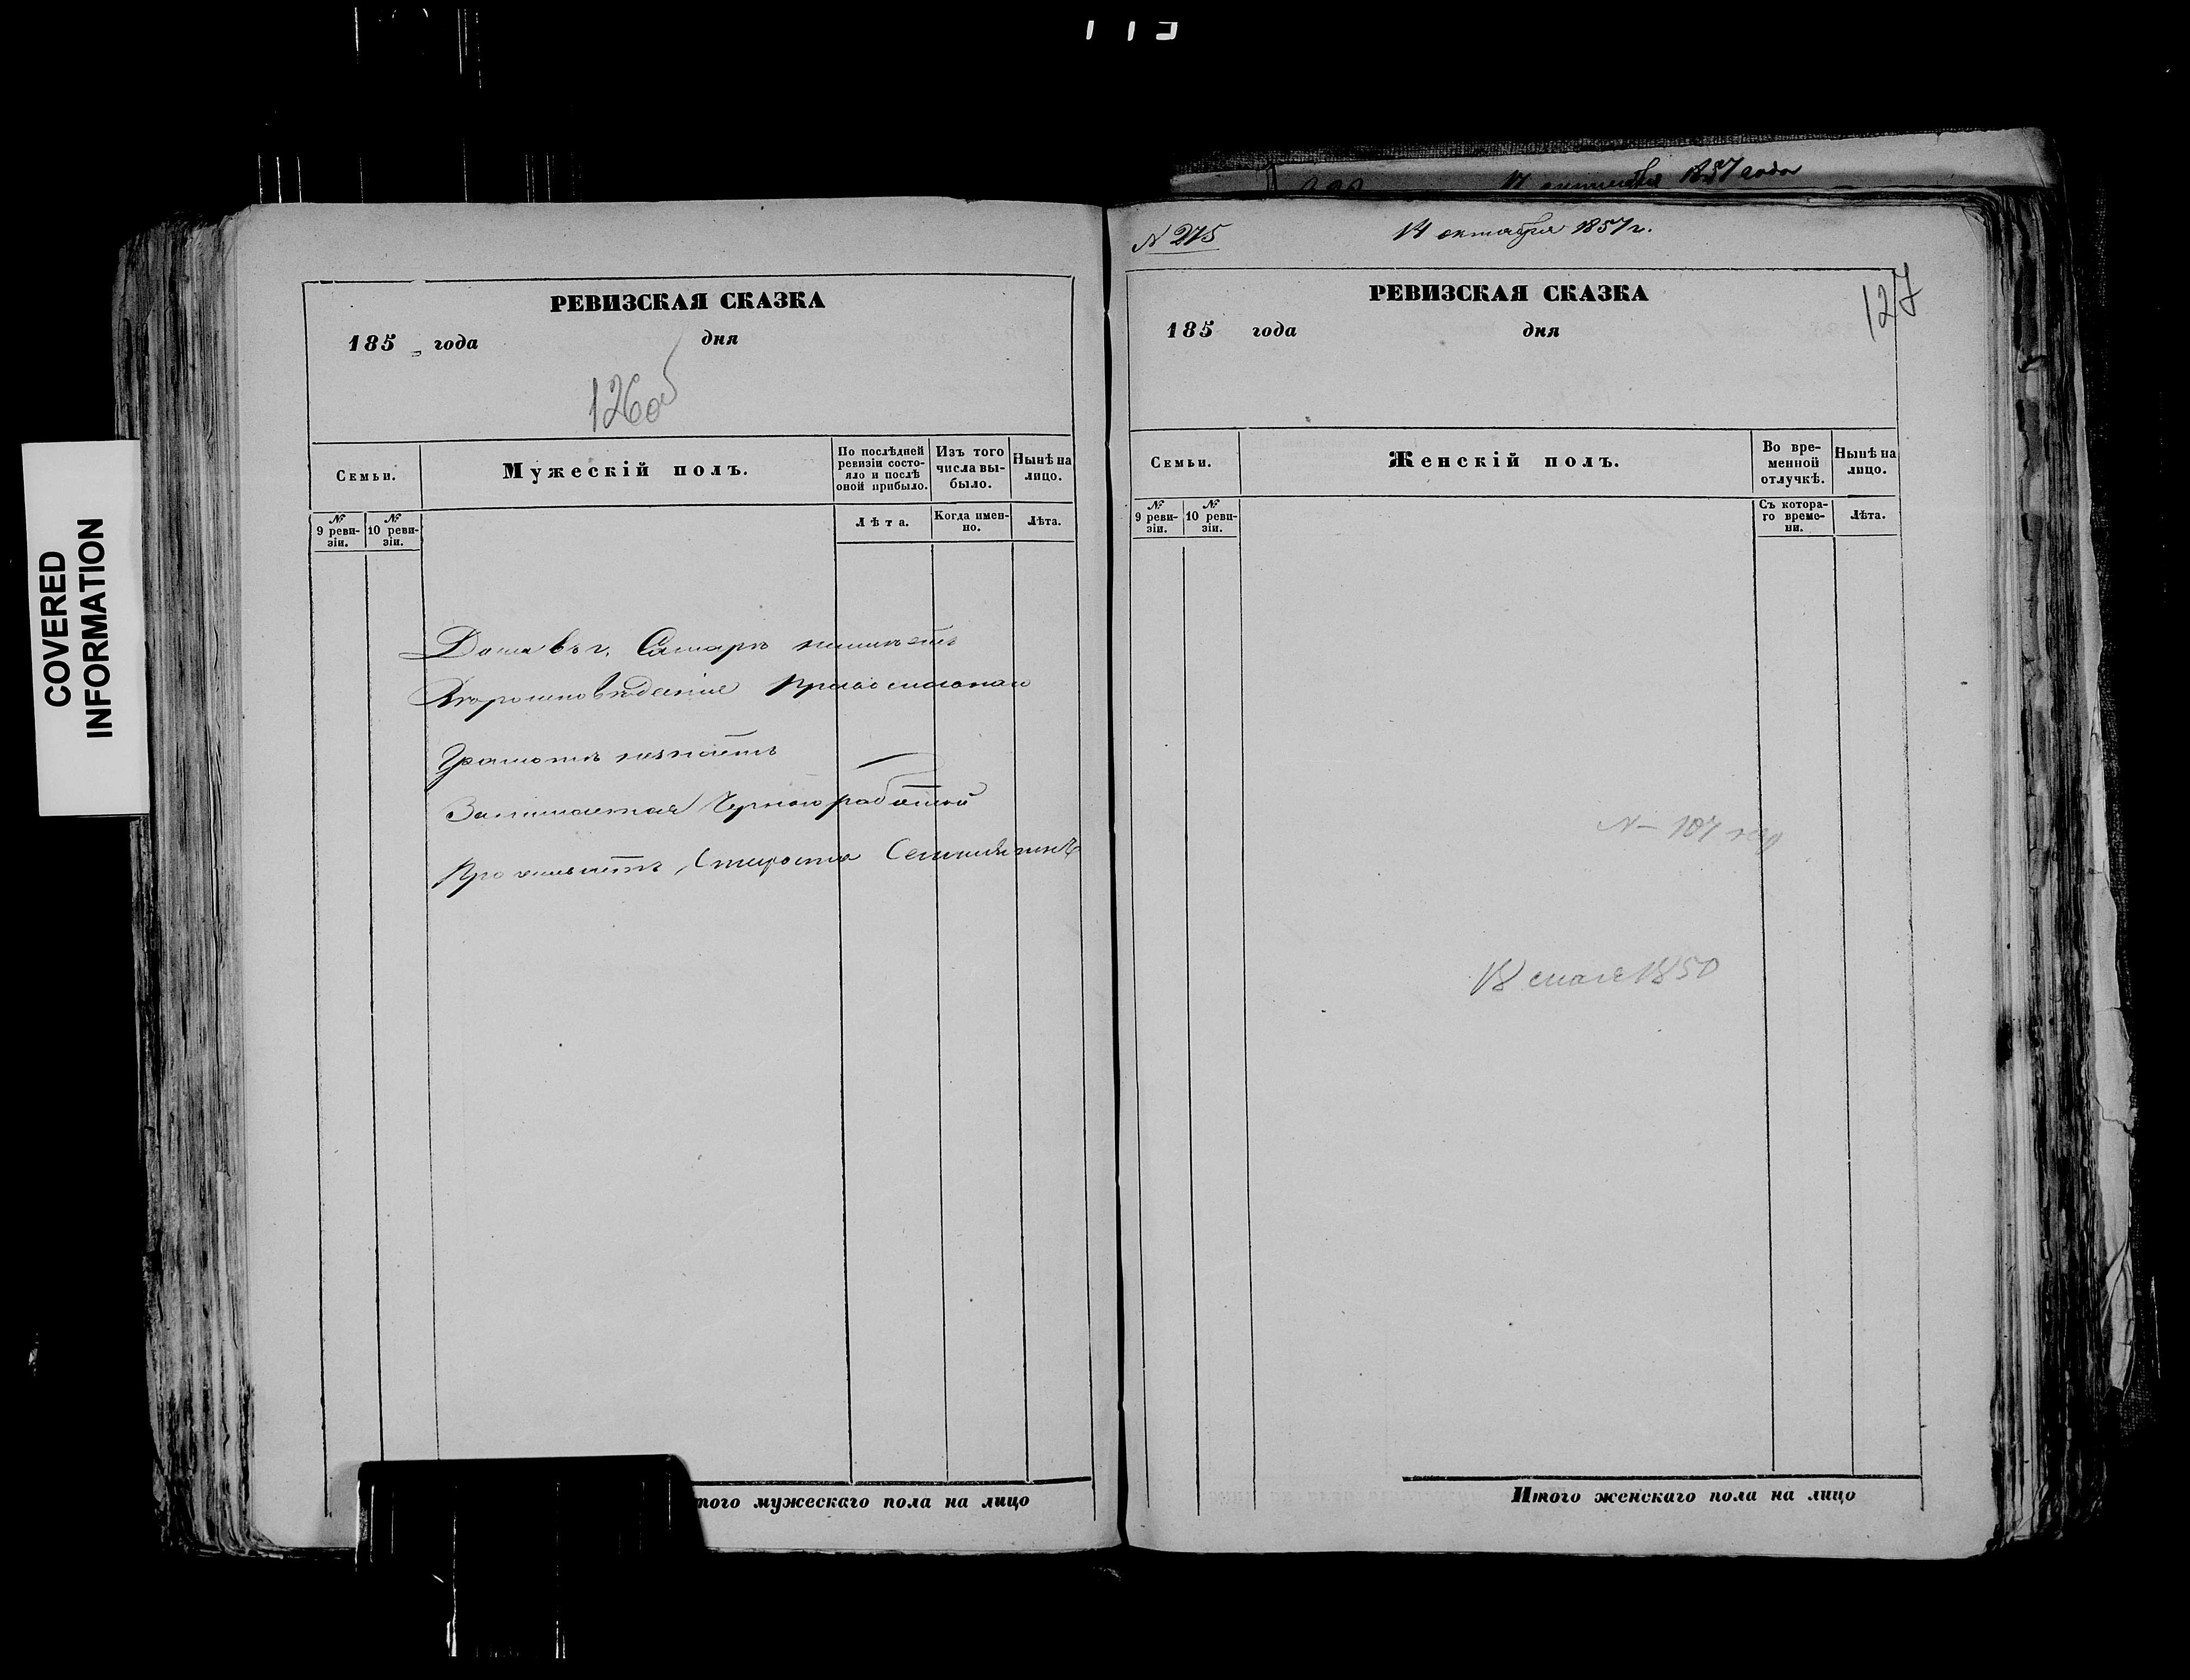 COVERED
INFORMATION
РЕВИЗСКАЯ СКАЗКА
185 года дня
126об
Семьи.
Мужескій полъ.
По послѣдней ревизіи состояло и послѣ оной прибыло.
Изъ того числа выбыло.
Нынѣ на лицо.
№ 9 ревизіи.
№ 10 ревизіи.
Лѣта.
Когда именно.
Лѣта.
Дома въ г. Самарѣ неимѣетъ
Вѣроисповѣденіе Православнаго
Грамотѣ незнаетъ
Занимается Черною работой
Проживаетъ
того мужескаго пола на лицо
октября 1857 года
N 275
14 октября 1857 г.
127
РЕВИЗСКАЯ СКАЗКА
185 года дня
Семьи.
Женскій полъ.
Во временной отлучкѣ.
Нынѣ на лицо.
№ 9 ревизіи.
№ 10 ревизіи.
Съ котораго времени.
Лѣта.
N 107
18 мая 1850
Итого женскаго пола на лицо